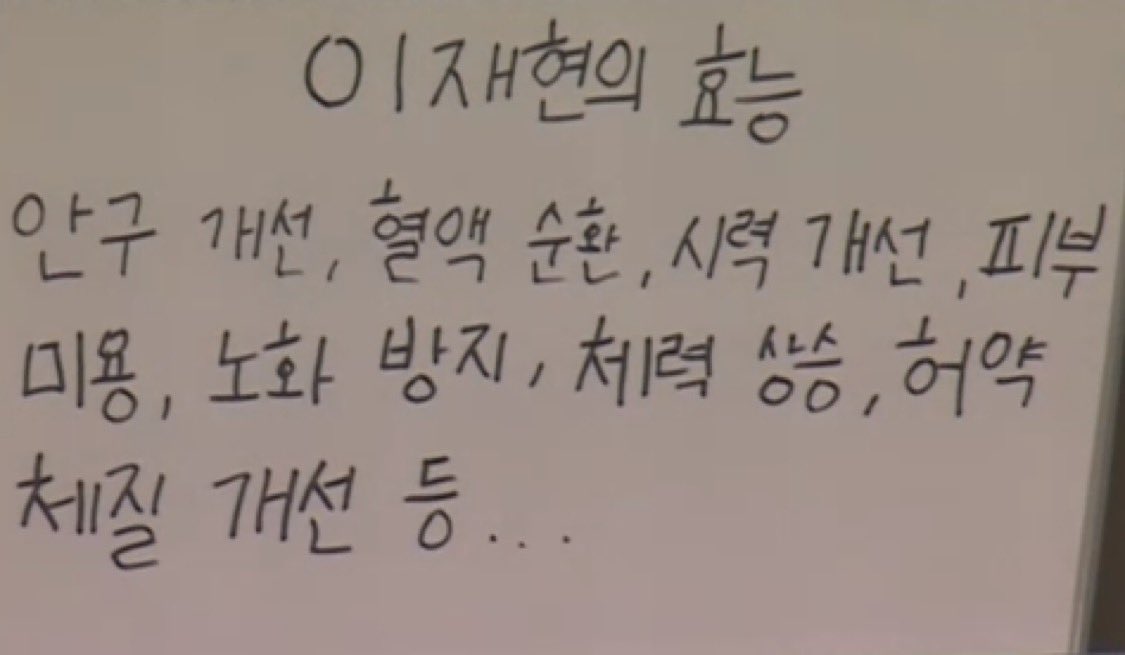 이재현의 효능
안구 개선, 혈액 순환, 시력 개선, 피부
미용, 노화 방지, 체력 상승, 허약
체질 개선 등...